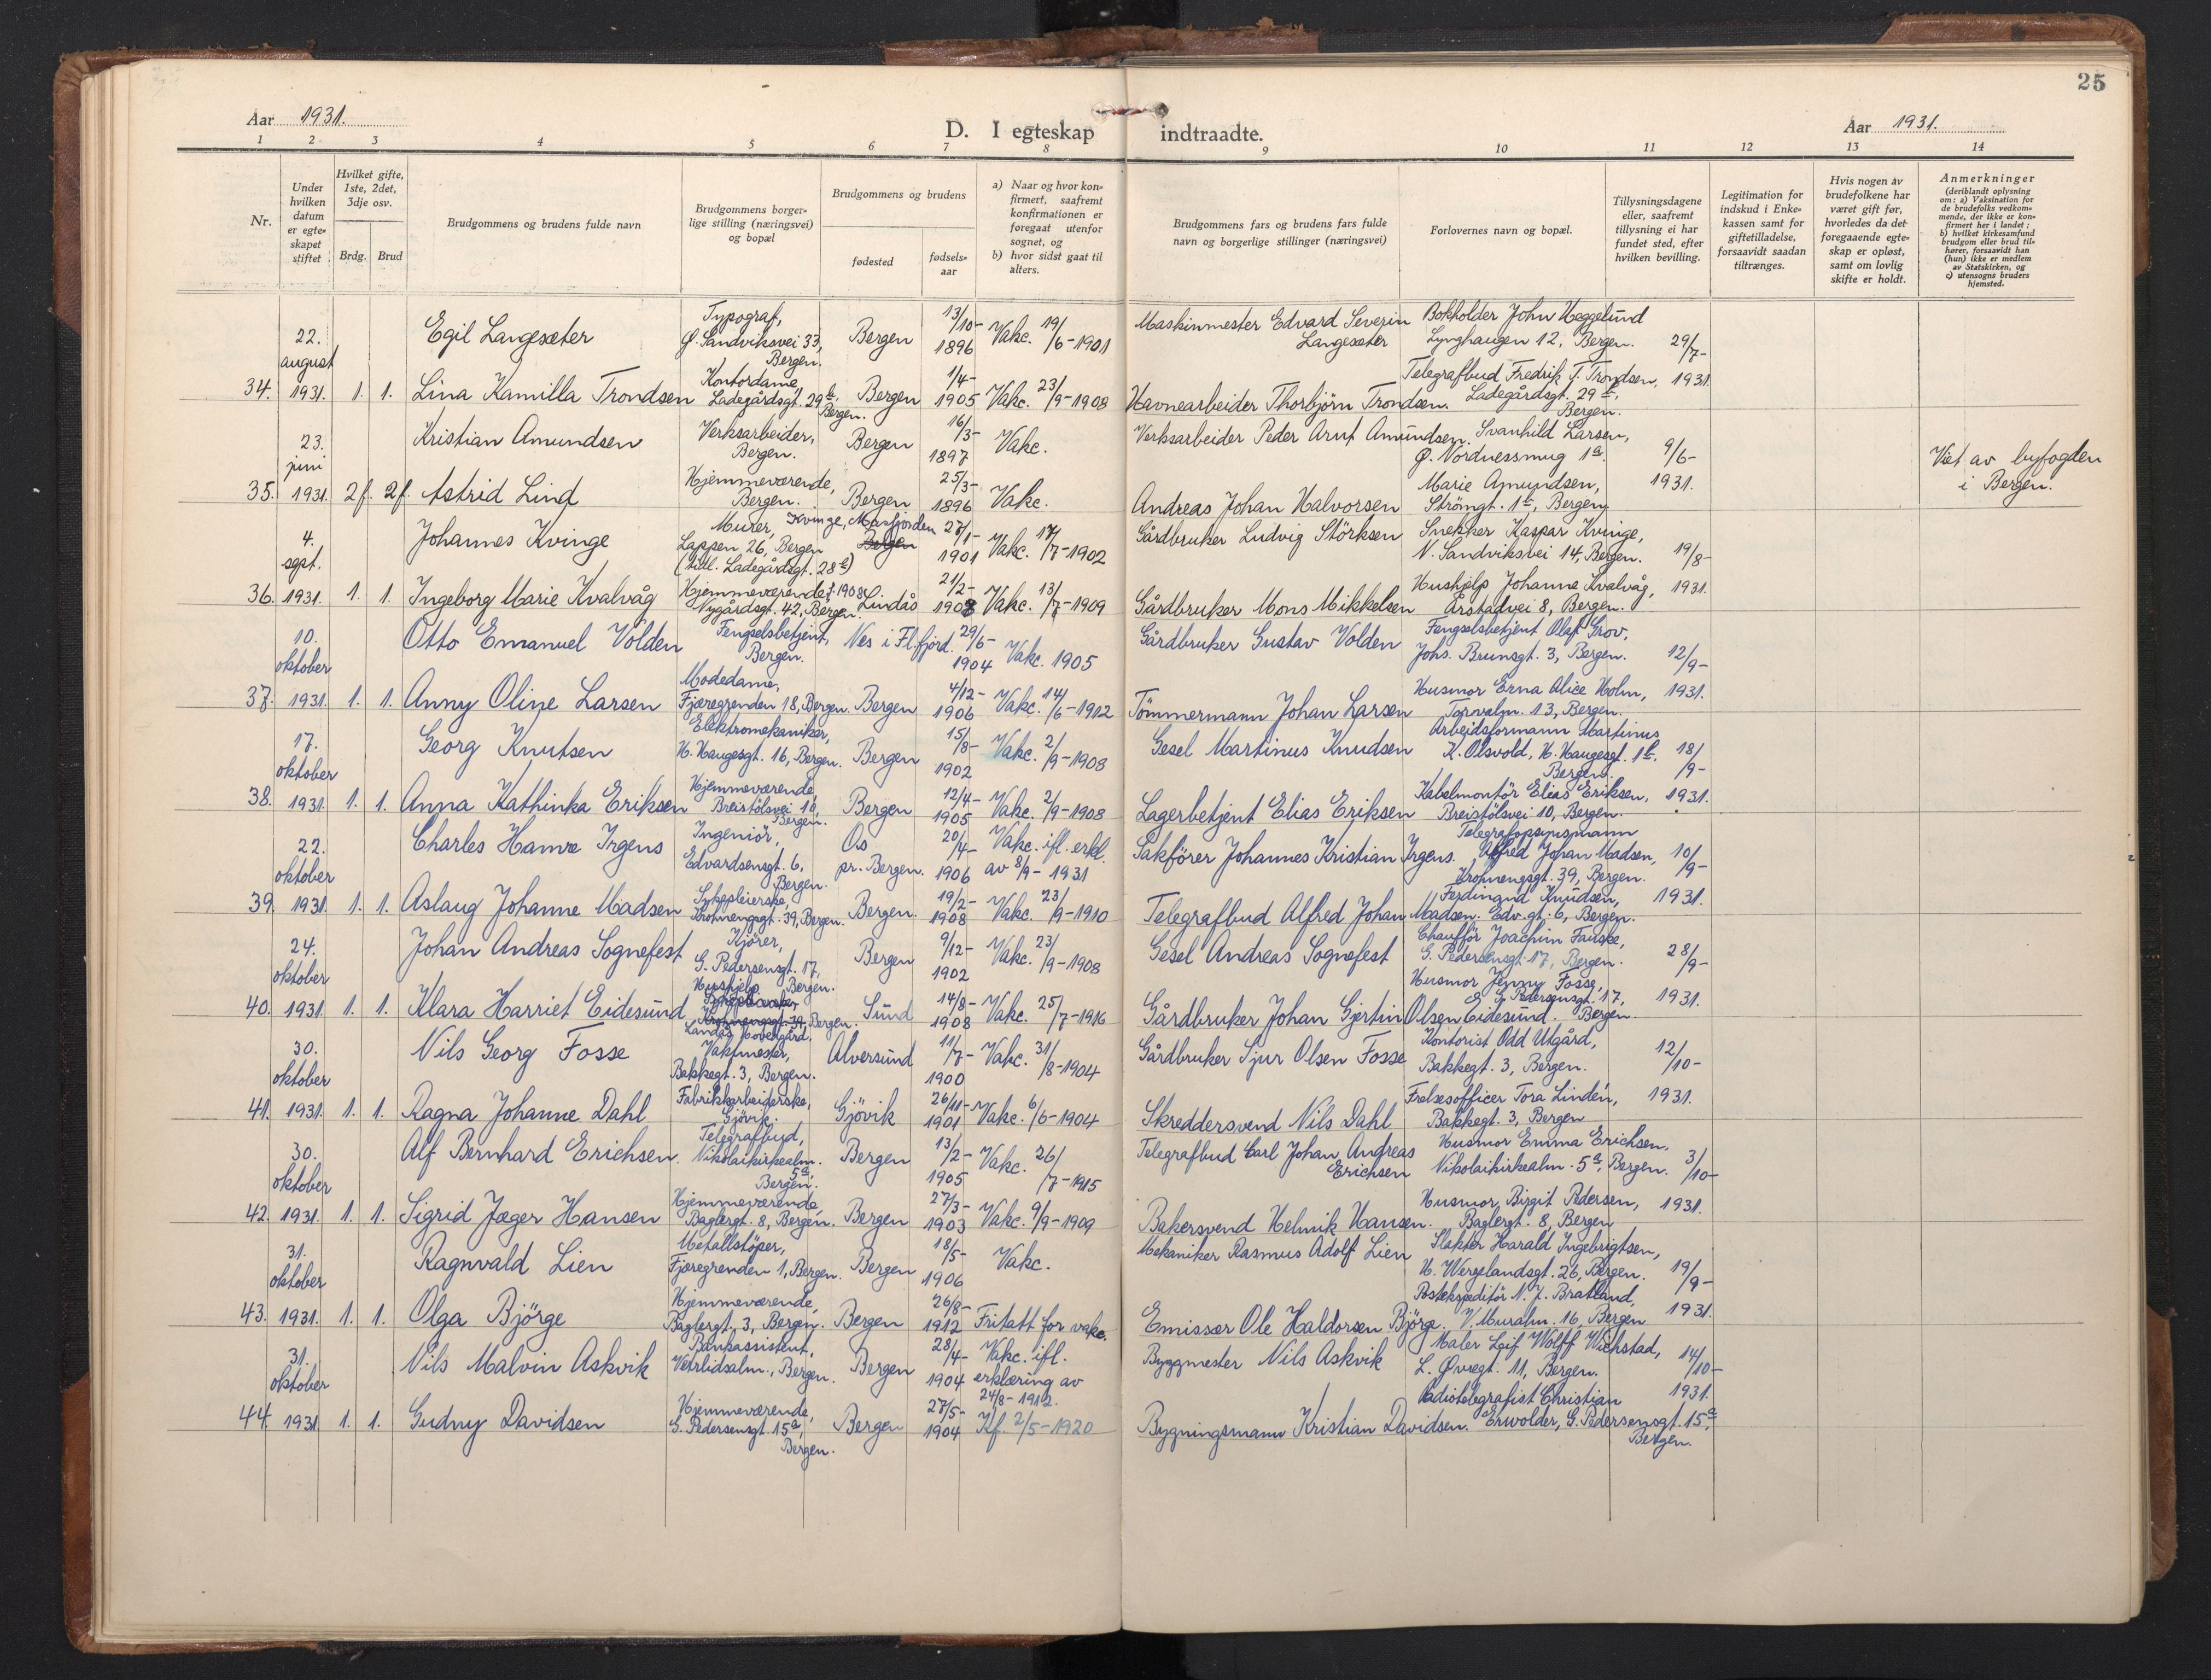 25
Aar 1931.
D. I egteskap indtraadte.
Aar 1931.
1 2 3 4 5 6 7 8 9 10 11 12 13 14
Nr.
Under hvilken datum er egteskapet stiftet
Hvilket gifte, 1ste, 2det, 3dje osv.
Brdg. Brud
Brudgommens og brudens fulde navn
Brudgommens borgerlige stilling (næringsvei) og bopæl
Brudgommens og brudens
fødested
fødselsaar
a) Naar og hvor konfirmert, saafremt konfirmationen er foregaat utenfor sognet, og
b) hvor sidst gaat til alters.
Brudgommens fars og brudens fars fulde navn og borgerlige stillinger (næringsvei)
Forlovernes navn og bopæl.
Tillysningsdagene eller, saafremt tillysning ei har fundet sted, efter hvilken bevilling.
Legitimation for indskud i Enkekassen samt for giftetilladelse, forsaavidt saadan tiltrænges.
Hvis nogen av brudefolkene har været gift før, hvorledes da det foregaaende egteskap er opløst, samt om lovlig skifte er holdt.
Anmerkninger
(deriblandt oplysning om: a) Vaksination for de brudefolks vedkommende, der ikke er konfirmert her i landet; b) hvilket kirkesamfund brudgom eller brud tilhører, forsaavidt han (hun) ikke er medlem av Statskirken, og c) utensogns bruders hjemsted.
34. 22. august 1931. 1. 1.
Egil Langesæter
Typograf, Ø. Sandviksvei 33, Bergen.
Bergen 13/10-1896 Vakc. 19/6-1901
Maskinmester Edvard Severin Langesæter
Bokholder John Heggelund Lynghaugen 12, Bergen.
29/7-1931.
Lina Kamilla Trondsen
Kontordame, Ladegårdsgt. 29b, Bergen.
Bergen 1/4-1905 Vakc. 23/9-1908
Havnearbeider Thorbjörn Trondsen.
Telegrafbud Fredrik T. Trondsen, Ladegårdsgt. 29b, Bergen.
35. 23. juni 1931. 2f. 2f.
Kristian Amundsen
Verksarbeider, Bergen.
Bergen 16/3-1897 Vakc.
Verksarbeider Peder Arnt Amundsen.
Svanhild Larsen, Ø. Nordnessmug 1a.
9/6-1931.
Viet av byfogden i Bergen.
Astrid Lind
Hjemmeværende, Bergen.
Bergen 25/3-1896 Vakc.
Andreas Johan Halvorsen
Marie Amundsen, Strömgt. 1b, Bergen.
36. 4. sept. 1931. 1. 1.
Johannes Kvinge
Murer, Lappen 26, Bergen (tidl. Ladegårdsgt. 28b)
Kvinge, Masfjorden Bergen 27/1-1901 Vakc. 17/7-1902
Gårdbruker Ludvig Störksen
Snekker Kaspar Kvinge, N. Sandviksvei 14, Bergen.
19/8-1931.
Ingeborg Marie Kvalvåg
Hjemmeværende, Nygårdsgt. 42, Bergen.
Lindås 21/2-1908 Vakc. 13/7-1909
Gårdbruker Mons Mikkelsen
Hushjelp Johanne Kvalvåg, Årstadvei 8, Bergen.
37. 10. oktober 1931. 1. 1.
Otto Emanuel Volden
Fengselsbetjent, Bergen.
Nes i Fl.fjord. 29/6-1904 Vakc. 1905
Gårdbruker Gustav Volden
Fengselsbetjent Olaf Grov, Johs. Brunsgt. 3, Bergen.
12/9-1931.
Anny Oline Larsen
Modedame, Fjæregrenden 18, Bergen.
Bergen 4/12-1906 Vakc. 14/6-1912
Tömmermann Johan Larsen
Husmor Erna Alice Holm, Torvalm. 13, Bergen.
38. 17. oktober 1931. 1. 1.
Georg Knutsen
Elektromekaniker, H. Haugesgt. 16, Bergen.
Bergen 15/8-1902 Vakc. 2/9-1908
Gesel Martinus Knudsen
Arbeidsformann Martinus K. Olsvold, H. Haugesgt. 1b, Bergen.
18/9-1931.
Anna Kathinka Eriksen
Hjemmeværende, Breistölsvei 10, Bergen.
Bergen 12/4-1905 Vakc. 2/9-1908
Lagerbetjent Elias Eriksen
Kabelmontör Elias Eriksen, Breistölsvei 10, Bergen.
39. 22. oktober 1931. 1. 1.
Charles Hamre Irgens
Ingeniör, Edvardsensgt. 6, Bergen.
Os pr. Bergen. 20/4-1906 Vakc. ifl. erkl. av 8/9-1931
Sakförer Johannes Kristian Irgens.
Telegrafopsynsmann Alfred Johan Madsen, Krohnengsgt. 39, Bergen.
10/9-1931.
Aslaug Johanne Madsen
Sykepleierske, Krohnengsgt. 39, Bergen.
Bergen. 19/2-1908 Vakc. 23/9-1910
Telegrafbud Alfred Johan Madsen.
Ferdinand Knudsen, Edv. gt. 6, Bergen.
40. 24. oktober 1931. 1. 1.
Johan Andreas Sognefest
Kjörer, G. Pedersensgt. 17, Bergen.
Bergen 9/12-1902 Vakc. 23/9-1908
Gesel Andreas Sognefest
Chaufför Joachim Fauske, G. Pedersensgt. 17, Bergen.
28/9-1931.
Klara Harriet Eidesund
Hushjelp Krohnengsgt. 39, Bergen. Landås Hovedgård.
Sund 14/8-1908 Vakc. 25/7-1916
Gårdbruker Johan Gjertin Olsen Eidesund.
Husmor Jenny Fosse, G. Pedersensgt. 17, Bergen.
41. 30. oktober 1931. 1. 1.
Nils Georg Fosse
Vaktmester, Bakkegt. 3, Bergen.
Alversund 11/7-1900 Vakc. 31/8-1904
Gårdbruker Sjur Olsen Fosse
Kontorist Odd Utgård, Bakkegt. 3, Bergen.
12/10-1931.
Ragna Johanne Dahl
Fabrikkarbeiderske, Gjövik.
Gjövik 26/11-1901 Vakc. 6/6-1904
Skreddersvend Nils Dahl
Frelsesofficer Tora Lindén, Bakkegt. 3, Bergen
42. 30. oktober 1931. 1. 1.
Alf Bernhard Erichsen.
Telegrafbud, Nikolaikirkealm. 5a, Bergen.
Bergen 13/2-1905 Vakc. 26/7-1915
Telegrafbud Carl Johan Andreas Erichsen
Husmor Emma Erichsen, Nikolaikirkealm. 5a, Bergen.
3/10-1931.
Sigrid Jæger Hansen
Hjemmeværende, Baglergt. 8, Bergen.
Bergen 27/3-1903 Vakc. 9/9-1909
Bakersvend Helmik Hansen.
Husmor Birgit Pedersen, Baglergt. 8, Bergen
43. 31. oktober 1931. 1. 1.
Ragnvald Lien
Metallstöper, Fjæregrenden 1, Bergen.
Bergen 18/5-1906 Vakc.
Mekaniker Rasmus Adolf Lien
Slakter Harald Ingebrigtsen, H. Wergelandsgt. 26, Bergen.
19/9-1931.
Olga Björge
Hjemmeværende, Baglergt. 3, Bergen.
Bergen 26/8-1912 Fritatt for vakc.
Emissær Ole Haldorsen Björge.
Postekspeditör N. J. Bratland, V. Muralm. 16, Bergen
44. 31. oktober 1931. 1. 1.
Nils Malvin Askvik
Bankassistent, Vetrlidsalm., Bergen.
Bergen 28/4-1904 Vakc. ifl. erklæring av 24/8-1912.
Byggmester Nils Askvik
Maler Leif Wolff Wichstad, L. Øvregt. 11, Bergen.
14/10-1931.
Gudny Davidsen
Hjemmeværende, G. Pedersensgt. 15a, Bergen.
Bergen 27/5-1904 Kf. 2/5-1920
Bygningsmann Kristian Davidsen.
Radiotelegrafist Christian Erwolder, G. Pedersensgt. 15a, Bergen.